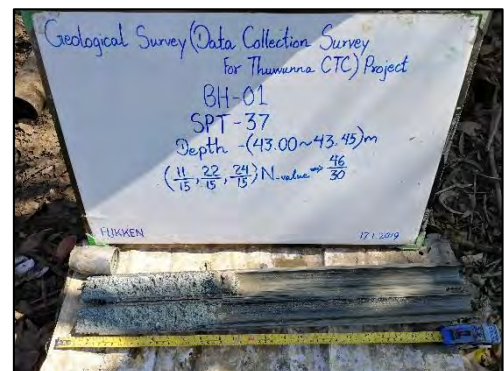 Geological Survey (Data Collection Survey
For Thuwunna CTC) Project
BH-01
SPT-37
Depth -(43.00~43.45)m
(11/15, 22/15, 24/15) N-value⇒ 46/30
FUKKEN 17.1.2019